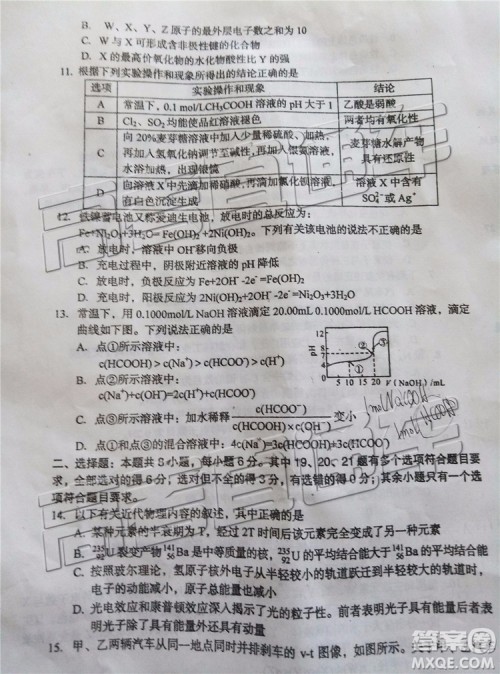 B. W、X、Y、Z原子的最外层电子数之和为10
C. W与X可形成含非极性键的化合物
D. X的最高价氧化物的水化物酸性比Y的强
11. 根据下列实验操作和现象所得出的结论正确的是
选项 实验操作和现象 结论
A 常温下，0.1 mol/LCH3COOH溶液的pH大于1 乙酸是弱酸
B Cl2、SO2均能使品红溶液褪色 两者均有氧化性
C 向20%麦芽糖溶液中加入少量稀硫酸、加热， 麦芽糖水解产物
再加入氢氧化钠调节至碱性，再加入银氨溶液， 具有还原性
水浴加热，出现银镜
D 向溶液X中先滴加稀硝酸，再滴加氯化钡溶液， 溶液X中含有
有白色沉淀生成 SO4²⁻或Ag⁺
12. 铁镍蓄电池又称爱迪生电池，放电时的总反应为：
Fe+Ni2O3+3H2O= Fe(OH)2+2Ni(OH)2 下列有关该电池的说法不正确的是
A. 放电时，溶液中OH⁻移向负极
B. 充电过程中，阴极附近溶液的pH降低
C. 放电时，负极反应为Fe+2OH⁻-2e⁻=Fe(OH)2
D. 充电时，阳极反应为2Ni(OH)2+2OH⁻-2e⁻=Ni2O3+3H2O
13. 常温下，用0.1000mol/L NaOH溶液滴定20.00mL 0.1000mol/L HCOOH溶液，滴定
曲线如下图。下列说法正确的是
A. 点①所示溶液中：
c(HCOOH)＞c(Na⁺)＞c(HCOO⁻)＞c(H⁺)
B. 点②所示溶液中：
c(Na⁺)=c(HCOO⁻)+c(HCOOH)
C. 点③所示溶液中：加水稀释 c(HCOO⁻)/c(HCOOH)×c(OH⁻) 变小
D. 点①和点③的混合溶液中：4c(Na⁺)=3c(HCOOH)+3c(HCOO⁻)
pH
12
8
4
0
① ② ③
5 10 15 20 V (NaOH) /mL
二、选择题：本题共8小题，每小题6分。其中19、20、21题有多个选项符合题目要
求，全部选对的得6分，选对但不全的得3分，有选错的得0分；其余小题只有一个选
项符合题目要求。
14. 以下有关近代物理内容的叙述，其中正确的是
A. 某种元素的半衰期为T，经过2T时间后该元素完全变成了另一种元素
B. ²³⁵₉₂U裂变产物¹⁴¹₅₆Ba是中等质量的核，²³⁵₉₂U的平均结合能大于¹⁴¹₅₆Ba的平均结合能
C. 按照玻尔理论，氢原子核外电子从半径较小的轨道跃迁到半径较大的轨道时，
电子的动能减小，原子总能量增大
D. 光电效应和康普顿效应深入揭示了光的粒子性。前者表明光子具有能量后者表
明光子除了具有能量外还具有动量
15. 甲、乙两辆汽车从同一地点同时并排刹车的v-t图像，如图所示。
答案圈
MXQE.COM